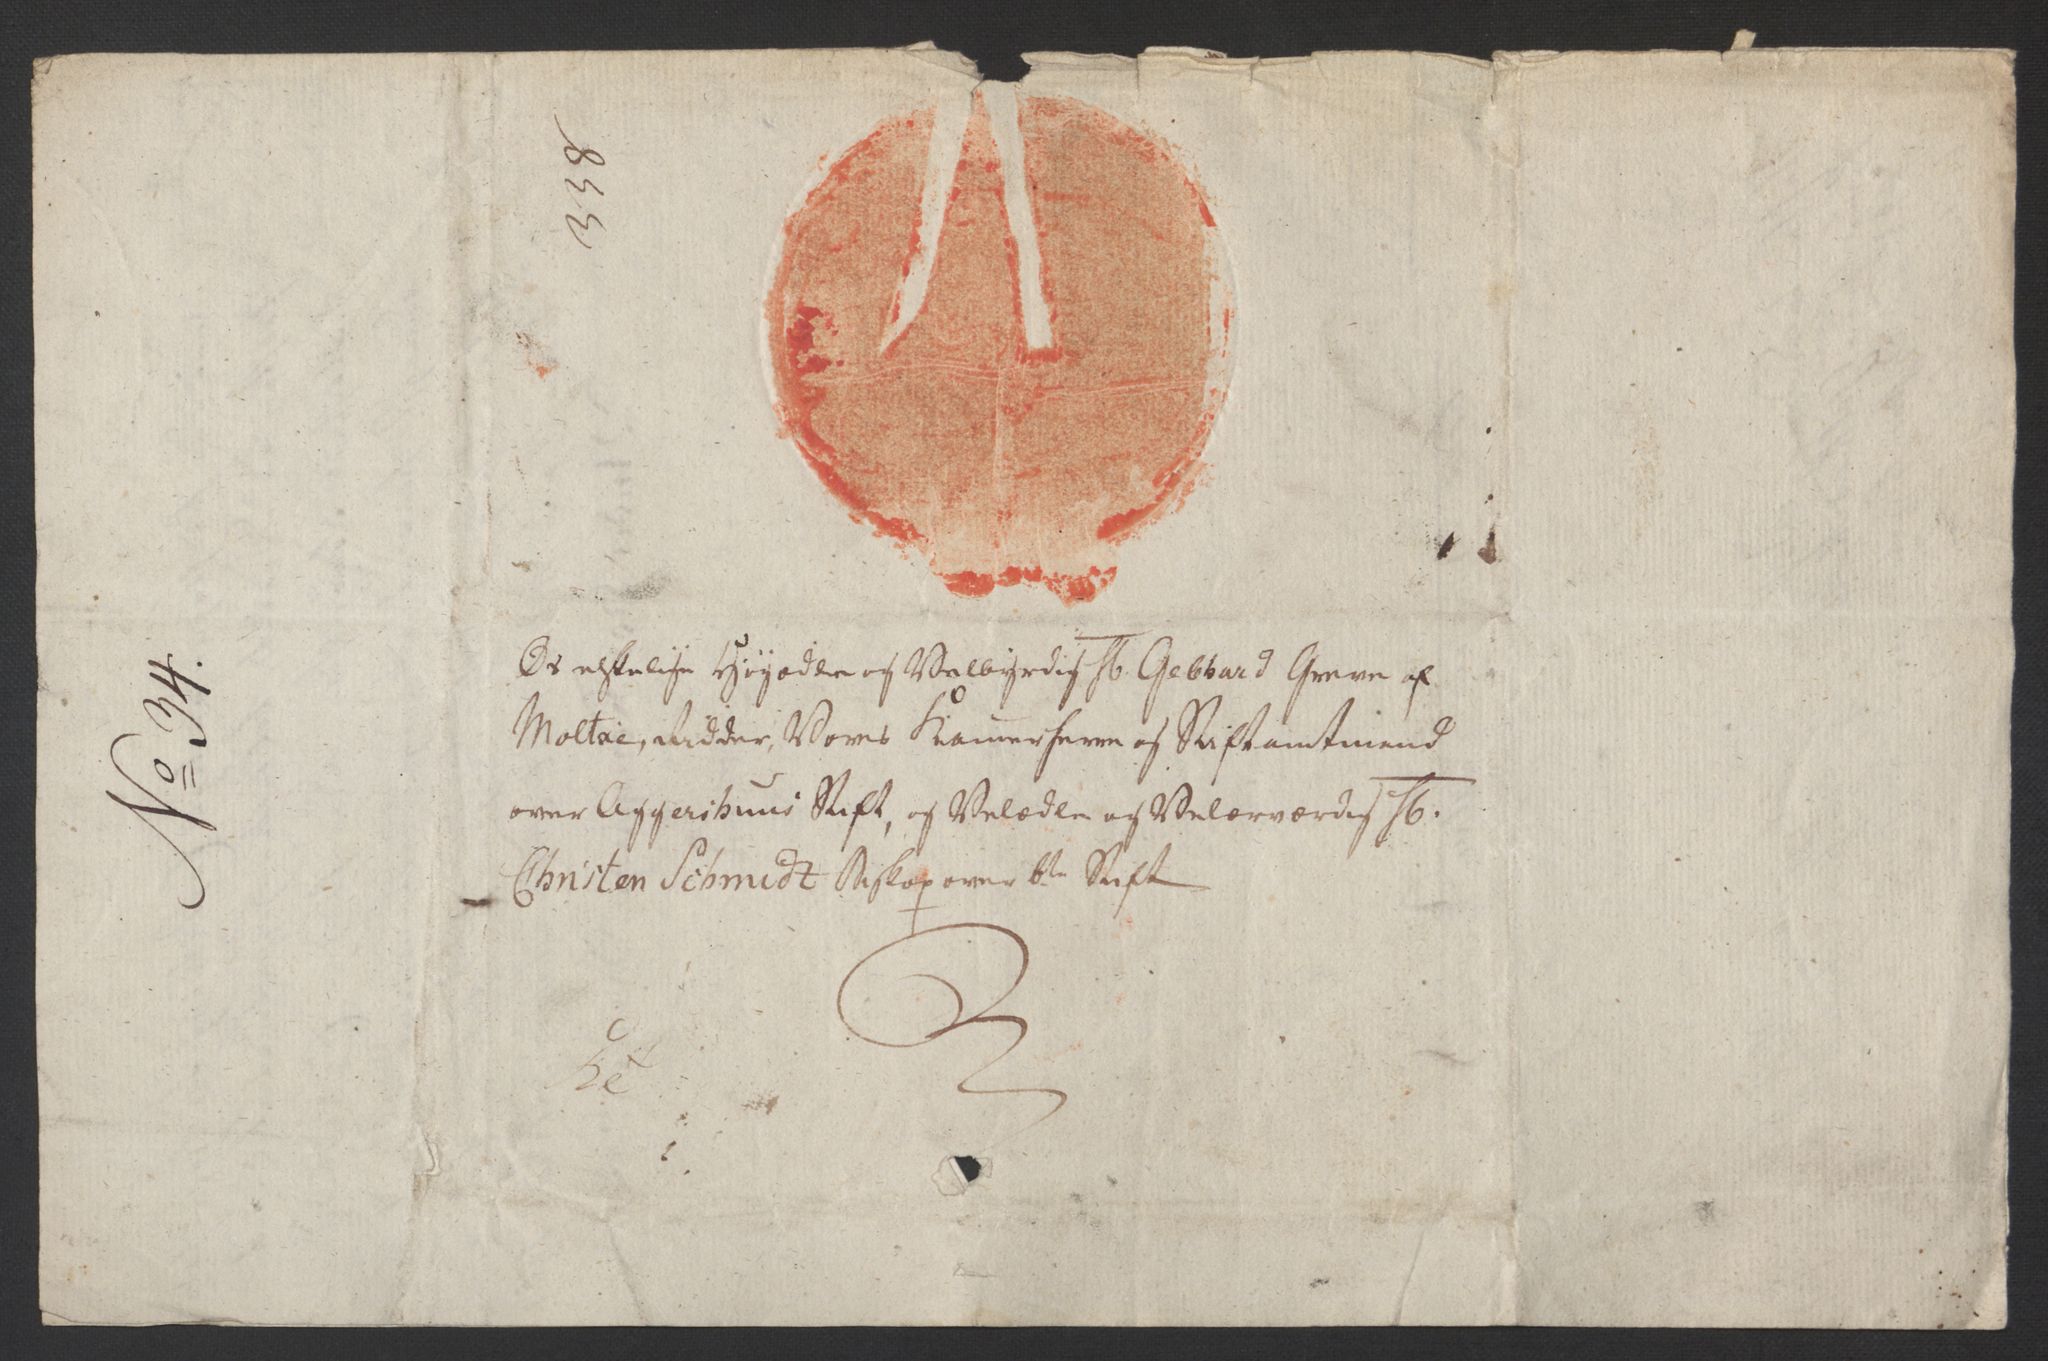 338
No 34.
Os elskelige Høyædle og Velbyrdig Hr. Gebhard Greve af
Moltke, Ridder, Vores Kammerherre og Stiftamtmand
over Aggershuus Stift, og Velædle og Velærværdig Hr.
Christen Schmidt Biskop over bte Stift